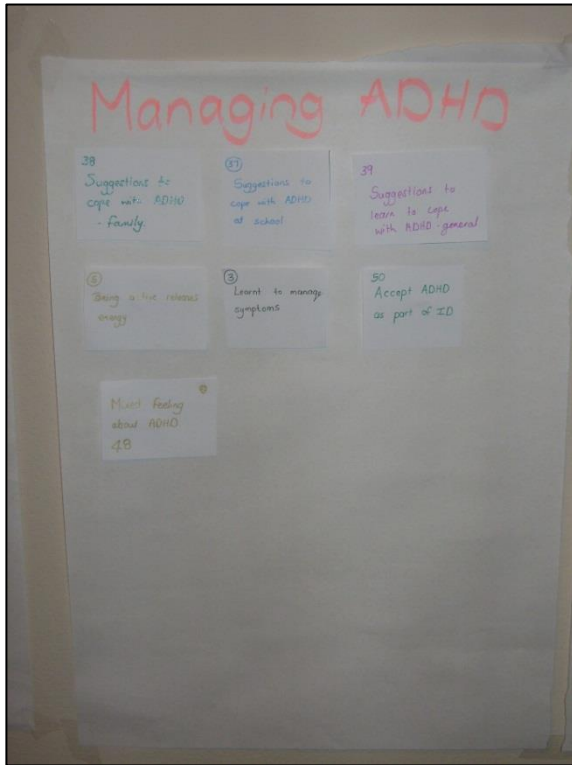 Managing ADHD
38
Suggestions to
cope with ADHD
- family.
37
Suggestions to
cope with ADHD
at school
39
Suggestions to
learn to cope
with ADHD - general
5
Being active releases
energy
3
Learnt to manage
symptoms
50
Accept ADHD
as part of ID
Mixed feeling
about ADHD
48